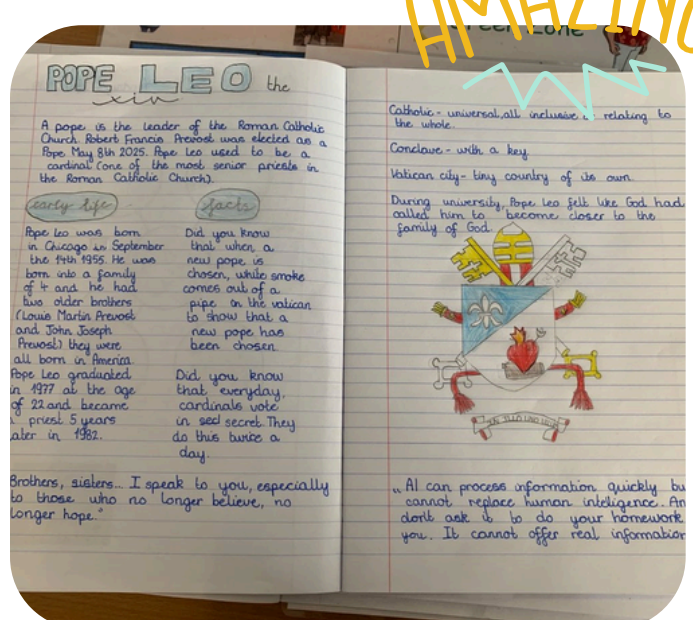 AMAZING
Green Zone
POPE LEO the
xiv
A pope is the leader of the Roman Catholic
Church. Robert Francis Prevost was elected as a
Pope May 8th 2025. Pope Leo used to be a
cardinal (one of the most senior priests in
the Roman Catholic Church).
early life
Pope Leo was born
in Chicago in September
the 14th 1955. He was
born into a family
of 4 and he had
two older brothers
(Louis Martin Prevost
and John Joseph
Prevost) they were
all born in America
Pope Leo graduated
in 1977 at the age
of 22 and became
priest 5 years
ater in 1982.
facts
Did you know
that when a
new pope is
chosen, white smoke
comes out of a
pipe in the vatican
to show that a
new pope has
been chosen.
Did you know
that everyday,
cardinals vote
in secret. They
do this twice a
day.
Brothers, sisters... I speak to you, especially
to those who no longer believe, no
longer hope."
Catholic - universal, all inclusive relating to
the whole.
Conclave - with a key.
Vatican city - tiny country of its own.
During university, Pope Leo felt like God had
called him to become closer to the
family of God.
IN ILLO UNO
"AI can process information quickly bu
cannot replace human intelligence. An
don't ask it to do your homework
you. It cannot offer real information